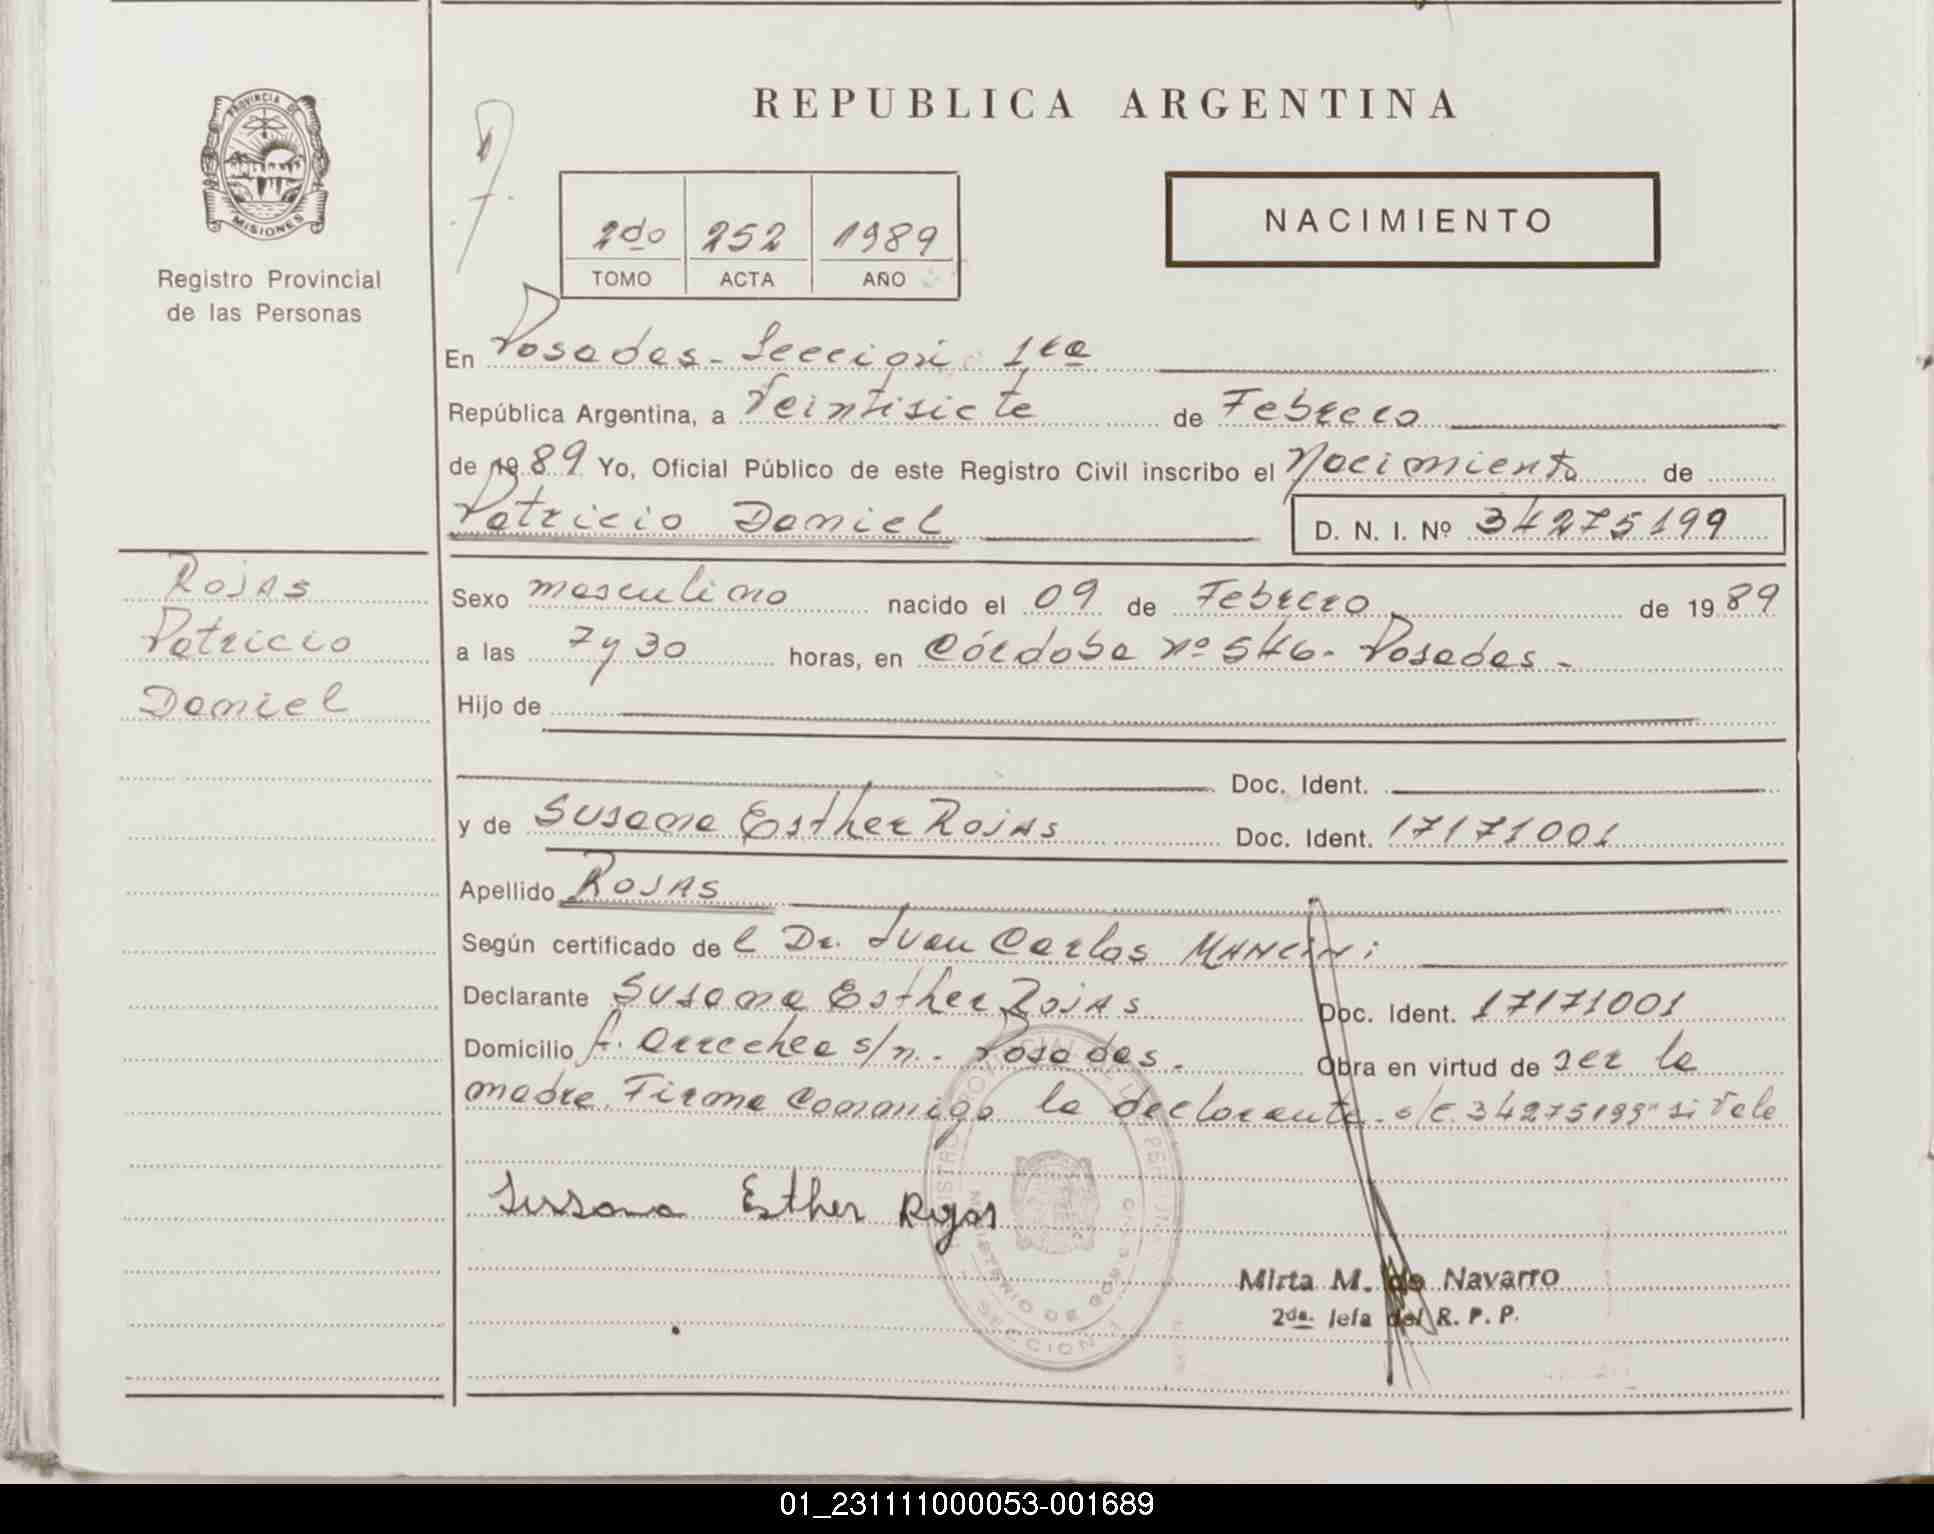 PROVINCIA DE
MISIONES
Registro Provincial
de las Personas
REPUBLICA ARGENTINA
2do 252 1989
TOMO ACTA AÑO
NACIMIENTO
En Posadas - Sección 1ra
República Argentina, a Veintisiete de Febrero
de 1989 Yo, Oficial Público de este Registro Civil inscribo el Nacimiento de
Patricio Daniel D. N. I. Nº 34275199
Rojas
Patricio
Daniel
Sexo masculino nacido el 09 de Febrero de 1989
a las 7 y 30 horas, en Córdoba nº 546 - Posadas -
Hijo de
Doc. Ident.
y de Susana Esther Rojas Doc. Ident. 17171001
Apellido Rojas
Según certificado de l Dr. Juan Carlos MANCINi
Declarante Susana Esther Rojas Doc. Ident. 17171001
Domicilio A. Arrechea s/n. - Posadas. Obra en virtud de ser la
madre. Firma Conmigo la declarante. s/c. 34275199" si Vale
Sussana Esther Rojas
MINISTERIO DE GOBIERNO
SECCION 1
Mirta M. de Navarro
2da. Jefa del R. P. P.
01_231111000053-001689